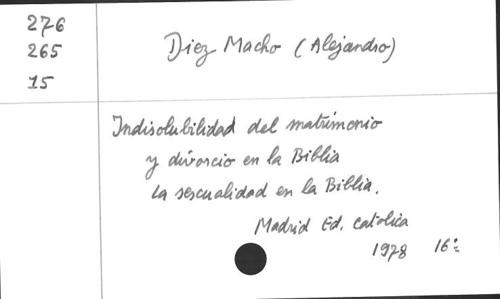 276
265
15
Diez Macho (Alejandro)
Indisolubilidad del matrimonio
y divorcio en la Biblia
La sexualidad en la Biblia.
Madrid Ed. Catolica
1978 16º